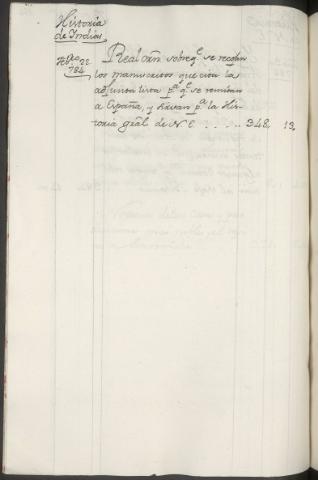 Historia
de Indias
Real orñ sobre q.e se recojan
22
784
los manuscritos que cita la
adjunta lista p.a q.e se remitan
a España, y sirvan p.a la His-
toria grãl de N. E. . . . . . 348. 13.